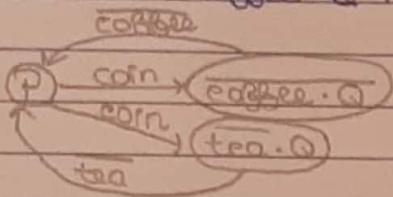 c̅o̅f̅f̅e̅e̅
P coin c̅o̅f̅f̅e̅e̅ . Q
coin t̅e̅a̅ . Q
t̅e̅a̅